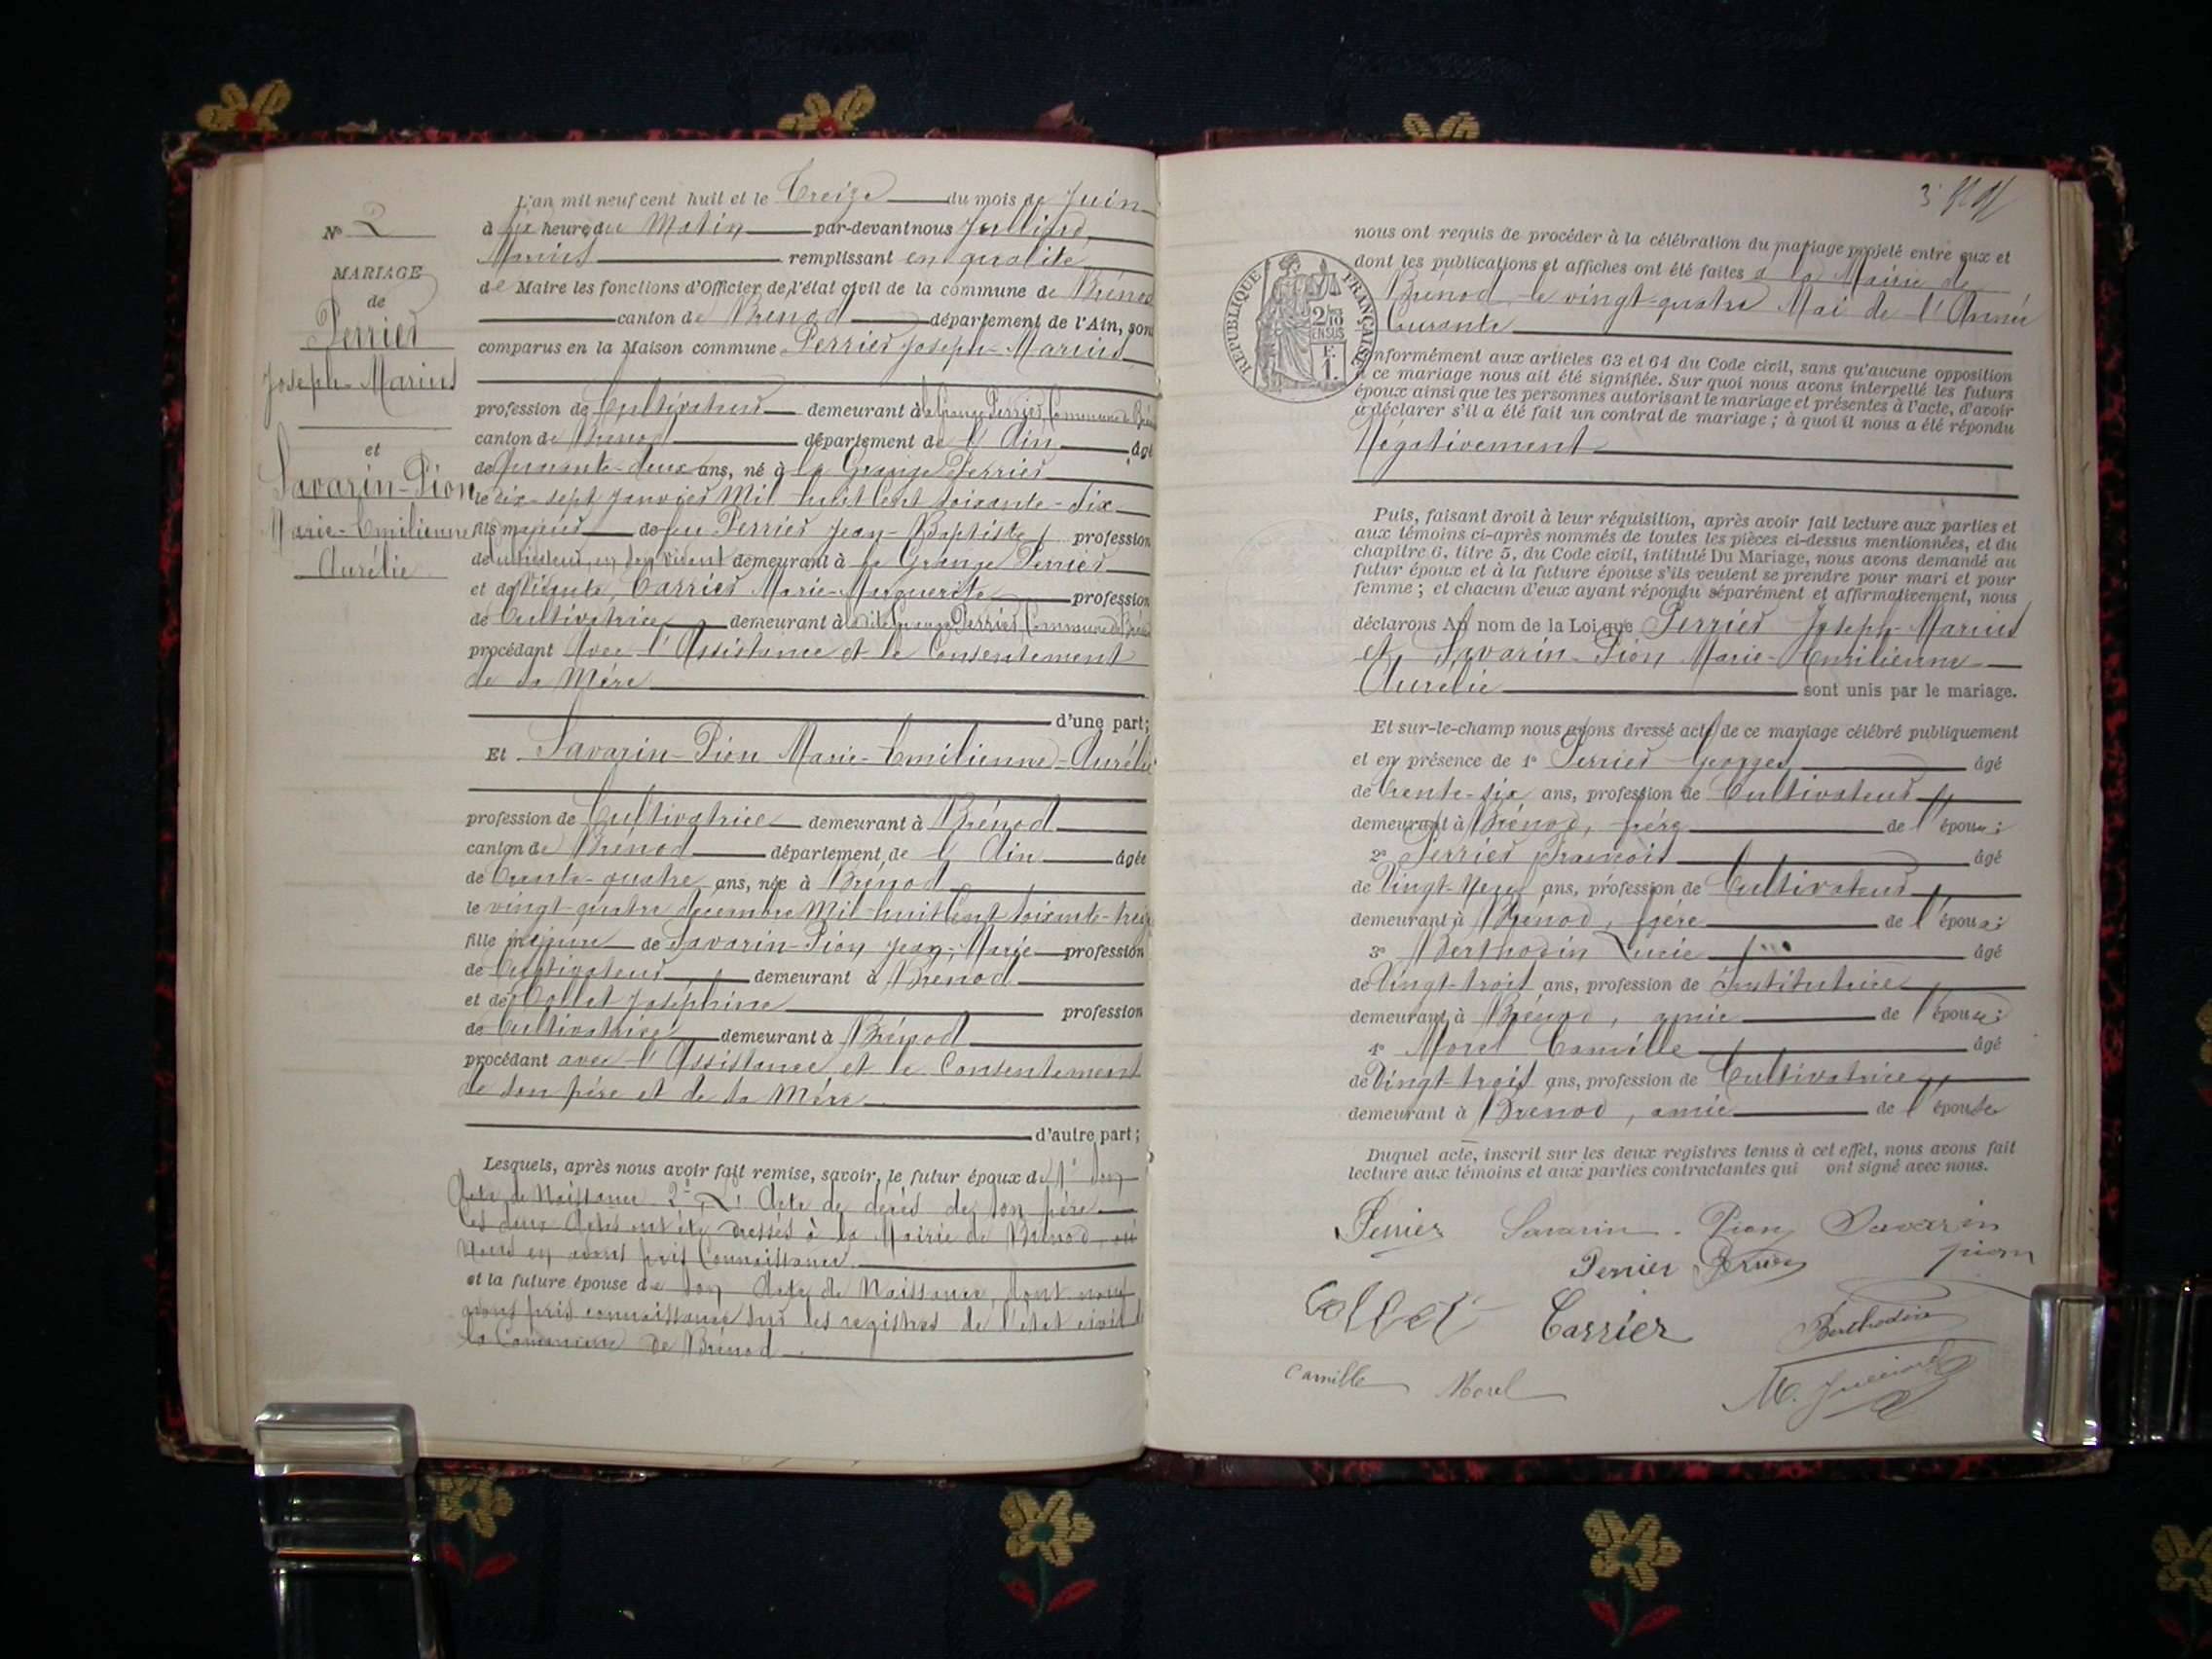 L'an mil neuf cent huit et le Treize du mois de Juin
N° 2
à dix heures du Matin par-devant nous Julliard
Marius remplissant en qualité
de Maire les fonctions d'Officier de l'état civil de la commune de Brénod
canton de Brénod département de l'Ain, sont
comparus en la Maison commune Perrier Joseph-Marius
MARIAGE
de
Perrier
Joseph-Marius
et
Savarin-Pion
Marie-Emilienne
Aurélie
profession de Cultivateur demeurant à la Grange Perrier, Commune de
canton de Brénod département de l'Ain âgé
de ans, né à la Grange Perrier
le dix-sept Janvier Mil huit Cent soixante-dix
fils majeur de feu Perrier Jean-Baptiste profession
de Cultivateur en son vivant demeurant à la Grange Perrier
et de Vivante, Carrier Marie-Marguerite profession
de Cultivatrice demeurant à la dite Grange Perrier, Commune de
procédant Avec l'Assistance et le Consentement
de sa Mère
d'une part;
Et Savarin-Pion Marie-Emilienne-Aurélie
profession de Cultivatrice demeurant à Brénod
canton de Brénod département de l'Ain âgée
de Trente-quatre ans, née à Brénod
le vingt-quatre décembre Mil-huit Cent soixante-treize
fille majeure de Savarin-Pion Jean-Marie profession
de Cultivateur demeurant à Brénod
et de Collet Joséphine profession
de Cultivatrice demeurant à Brénod
procédant avec l'Assistance et le Consentement
de son père et de sa Mère
d'autre part;
Lesquels, après nous avoir fait remise, savoir, le futur époux de 1° Son
Acte de Naissance 2° L'Acte de décès de son père
Ces deux Actes ont été dressés à la Mairie de Brénod où
Nous en avons pris Connaissance
et la future épouse de Son Acte de Naissance, dont nous
avons pris connaissance sur les registres de l'état civil de
la Commune de Brénod
3
nous ont requis de procéder à la célébration du mariage projeté entre eux et
dont les publications et affiches ont été faites à la Mairie de
Brénod, le vingt-quatre Mai de l'Année
Courante
RÉPUBLIQUE FRANÇAISE
2/10
EN SUS
F.
1.
conformément aux articles 63 et 64 du Code civil, sans qu'aucune opposition
à ce mariage nous ait été signifiée. Sur quoi nous avons interpellé les futurs
époux ainsi que les personnes autorisant le mariage et présentes à l'acte, d'avoir
à déclarer s'il a été fait un contrat de mariage ; à quoi il nous a été répondu
Négativement
Puis, faisant droit à leur réquisition, après avoir fait lecture aux parties et
aux témoins ci-après nommés de toutes les pièces ci-dessus mentionnées, et du
chapitre 6, titre 5, du Code civil, intitulé Du Mariage, nous avons demandé au
futur époux et à la future épouse s'ils veulent se prendre pour mari et pour
femme ; et chacun d'eux ayant répondu séparément et affirmativement, nous
déclarons Au nom de la Loi que Perrier Joseph-Marius
et Savarin-Pion Marie-Emilienne
Aurélie sont unis par le mariage.
Et sur-le-champ nous avons dressé acte de ce mariage célébré publiquement
et en présence de 1° Perrier Georges, âgé
de trente-six ans, profession de Cultivateur
demeurant à Brénod, frère de l'époux;
2° Perrier François âgé
de Vingt-Neuf ans, profession de Cultivateur
demeurant à Brénod, frère de l'époux;
3° Berthodin Lucie âgé
de Vingt-trois ans, profession de Institutrice
demeurant à Brénod, amie de l'épouse;
4° Morel Camille âgé
de Vingt-trois ans, profession de Cultivatrice
demeurant à Brénod, amie de l'épouse
Duquel acte, inscrit sur les deux registres tenus à cet effet, nous avons fait
lecture aux témoins et aux parties contractantes qui ont signé avec nous.
Perrier Savarin-Pion Savarin
pion
Perrier Perrier
Collet Carrier Berthodin
Camille Morel M. Julliard